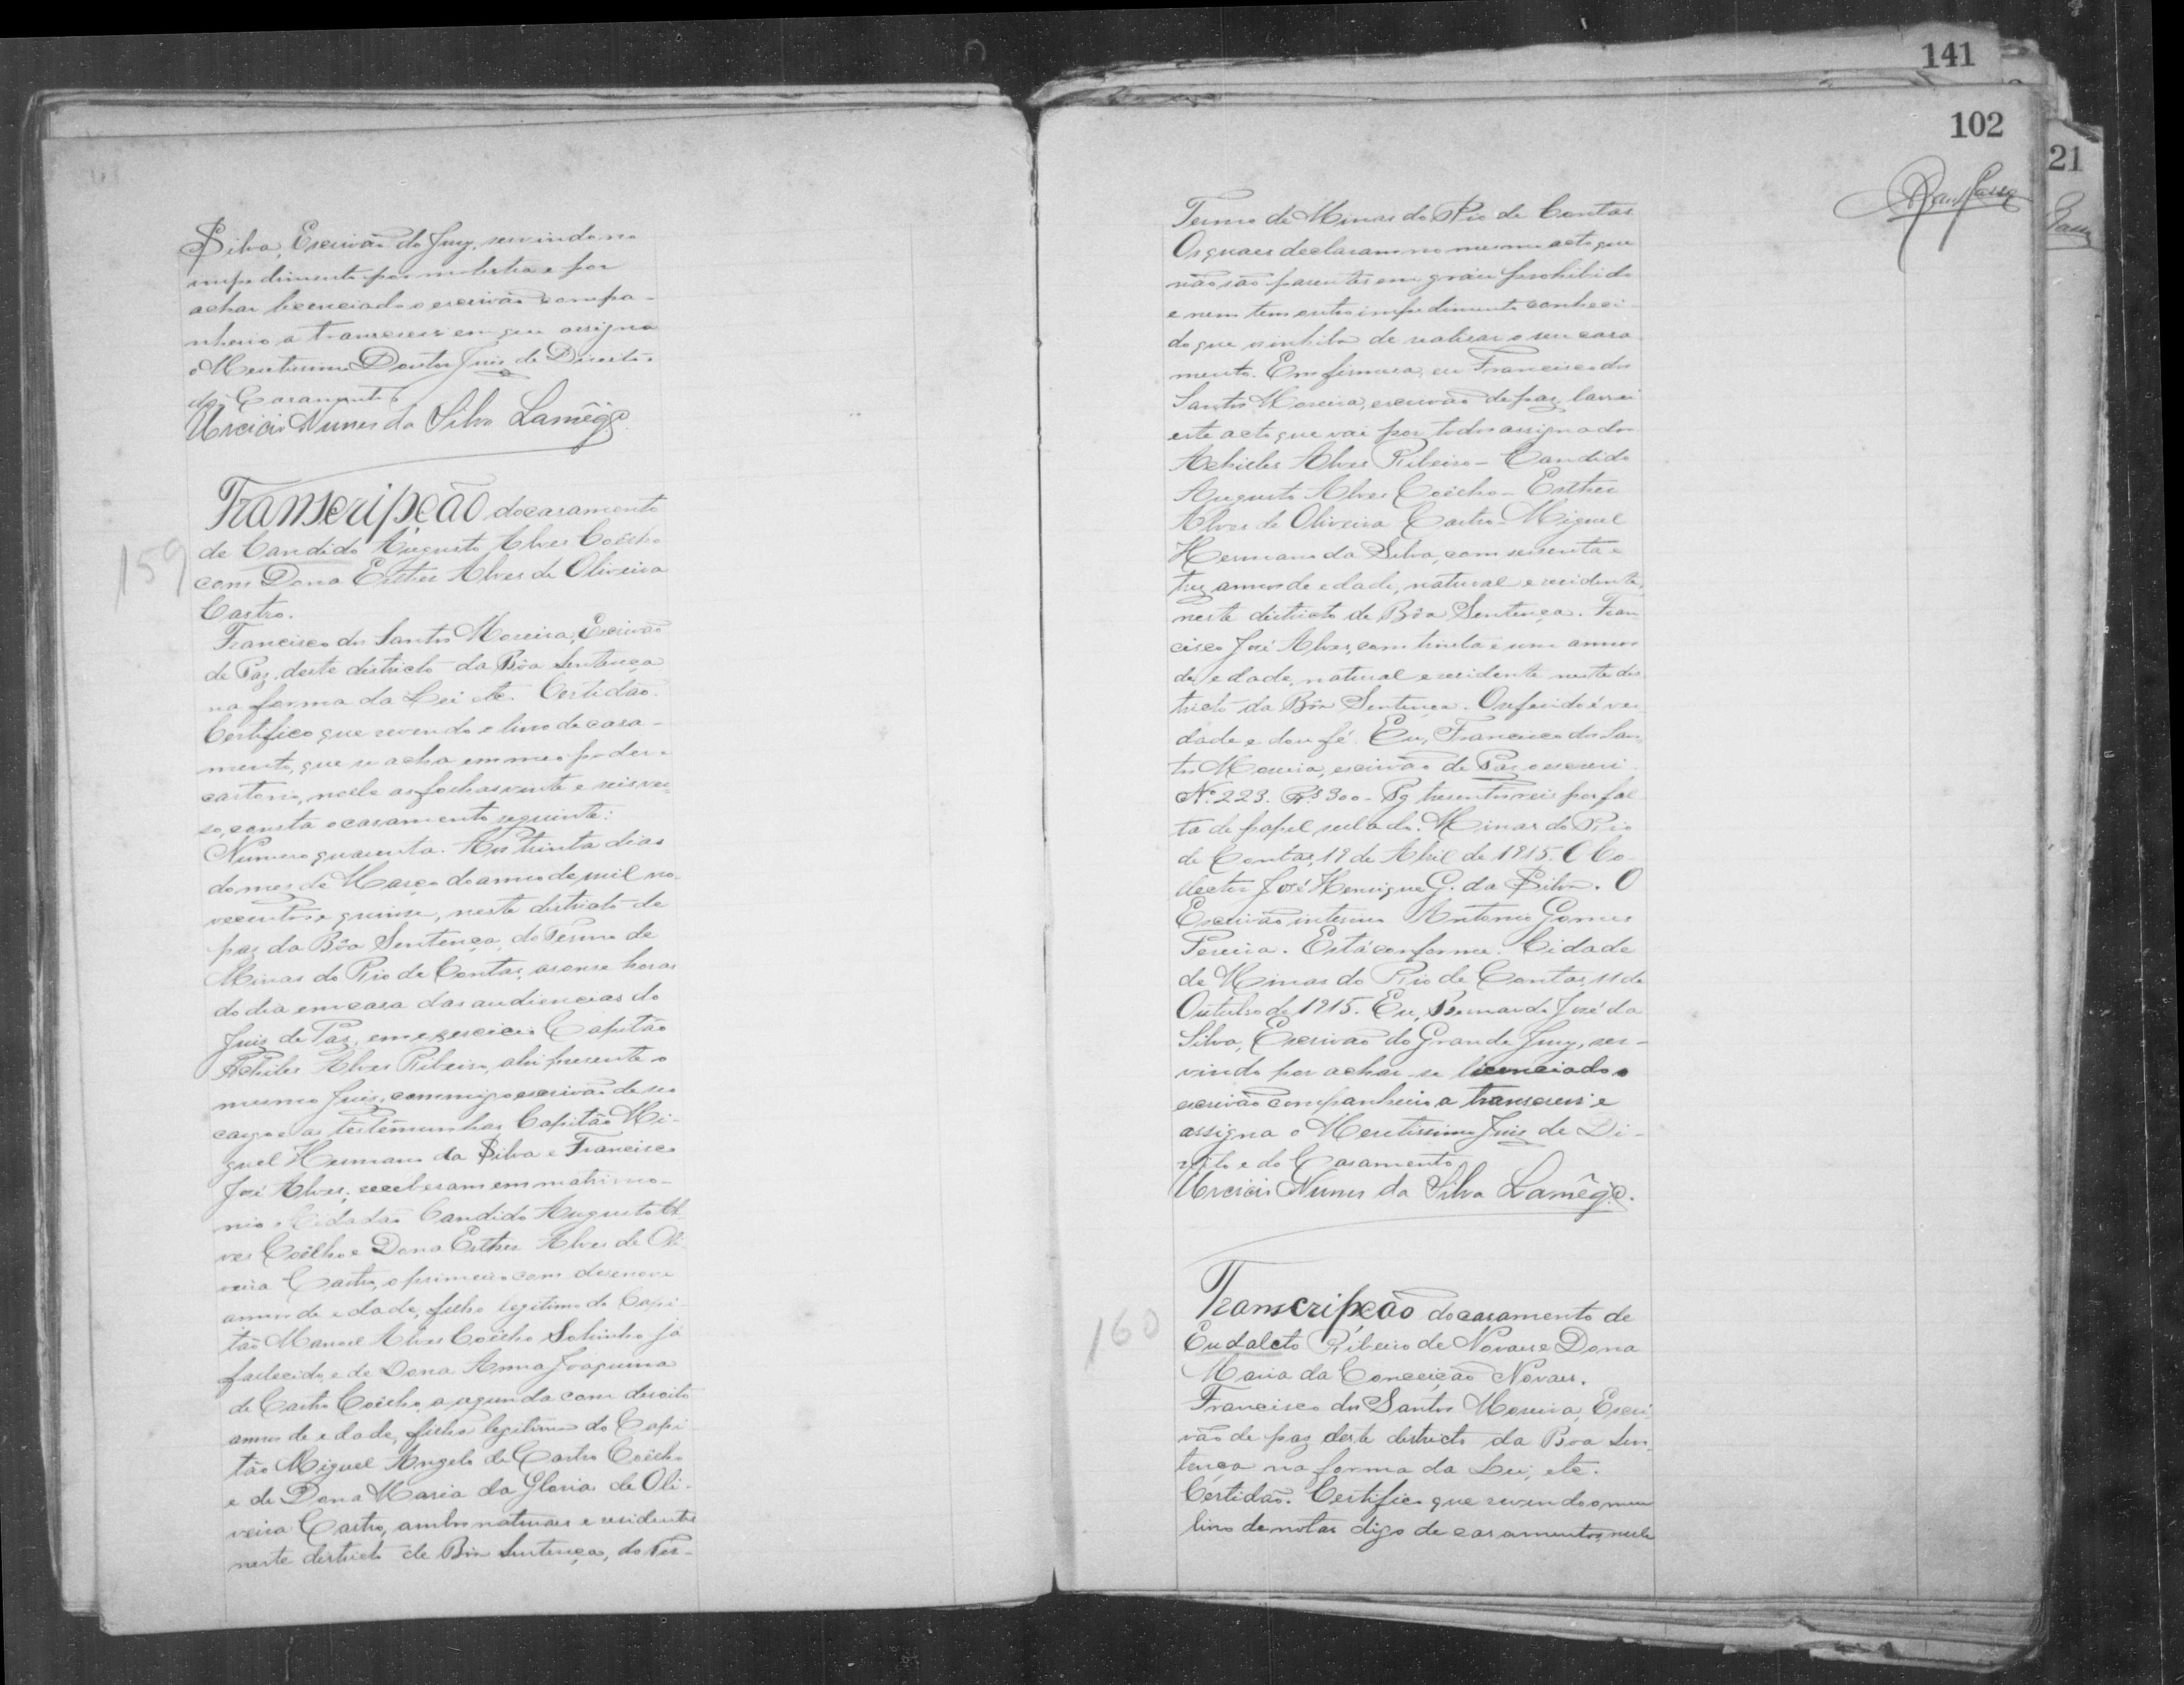 Silva, Escrivão do Jury, servindo no
impedimento por molestia e por
achar licenciado o escrivão compa-
nheiro a transcrevi em que assigna
o Meretissimo Doutor Juis de Direito e
do Casamento.
Urcicio Nunes da Silva Lamêgo.
159
Transcripção do casamento
de Candido Augusto Alves Coêlho
com Dona Esther Alves de Oliveira
Castro.
Francisco dos Santos Moreira, Escrivão
de Paz deste districto da Bôa Sentença
na forma da Lei etc. Certidão.
Certifico que revendo o livro de casa-
mento, que se acha em meo poder e
cartorio, nelle as folhas vinte e seis ver-
so, consta o casamento seguinte:
Numero quarenta. Aos trinta dias
do mes de Março do anno de mil no-
vecentos e quinse, neste districto de
paz da Bôa Sentença, do Termo de
Minas do Rio de Contas, as onse horas
do dia em casa das audiencias do
Juis de Paz, em exercicio Capitão
Achiles Alves Ribeiro, ahi presente o
mesmo Juis, commigo escrivão de seo
cargo e as testemunhas Capitão Mi-
guel Hermano da Silva e Francisco
José Alves; receberam em matrimo-
nio o Cidadão Candido Augusto Al-
ves Coêlho e Dona Esther Alves de Oli-
veira Castro, o primeiro com desenove
annos de edade, filho legitimo do Capi-
tão Manoel Alves Coêlho Sobrinho já
fallecido, e de Dona Anna Joaquina
de Castro Coêlho, a segunda com desoito
annos de edade, filha legitima do Capi-
tão Miguel Angelo de Castro Coêlho
e de Dona Maria da Gloria de Oli-
veira Castro, ambos naturaes e residentes
neste districto de Bôa Sentença, do Ter-
141
102
21
Termo de Minas do Rio de Contas
Os quaes declararam no mesmo acto que
não são parentes em gráu prohibido
e nem tem outro impedimento conheci-
do que os inhiba de realisar o seu casa-
mento. Em firmesa, eu Francisco dos
Santos Moreira, escrivão de paz lavrei
este acto que vai por todos assignados
Achiles Alves Ribeiro - Candido
Augusto Alves Coêlho - Esther
Alves de Oliveira Castro - Miguel
Hermano da Silva, com sessenta e
trez annos de edade, natural e residente,
neste districto de Bôa Sentença. Fran-
cisco José Alves, com trinta e um annos
de edade, natural e residente neste dis-
tricto da Bôa Sentença. O referido é ver-
dade e dou fé. Eu, Francisco dos San-
tos Moreira, escrivão de Paz o escrevi.
Nº 223. Rs 300 - Pg tresentos reis por fal-
ta de papel sellado. Minas do Rio
de Contas, 19 de Abril de 1915. O Co-
llector José Henrique G. da Silva. O
Escrivão interino Antonio Gomes
Pereira. Está conforme. Cidade
de Minas do Rio de Contas, 11 de
Outubro de 1915. Eu, Bernardo José da
Silva, Escrivão do Grande Jury, ser-
vindo por achar-se licenciado o
escrivão companheiro a transcrevi e
assigna o Meretissimo Juis de Di-
reito e do Casamento.
Urcicio Nunes da Silva Lamêgo.
160
Transcripção do casamento de
Eudalcto Ribeiro de Novaes e Dona
Maria da Conceição Novaes.
Francisco dos Santos Moreira, Escri-
vão de paz deste districto da Boa Sen-
tença na forma da Lei, etc.
Certidão. Certifico que revendo o meu
livro de notas digo de casamentos, nelle